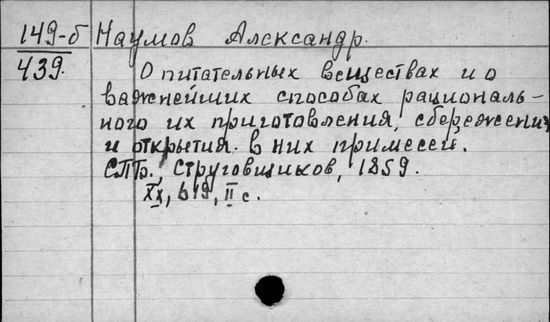 149-б Наумов Александр.
439.
О питательных веществах и о
важнейших способах рациональ-
ного их приготовления, сбережения
и открытия в них примесей.
СПб., Струговщиков, 1859.
XX, 619, II с.